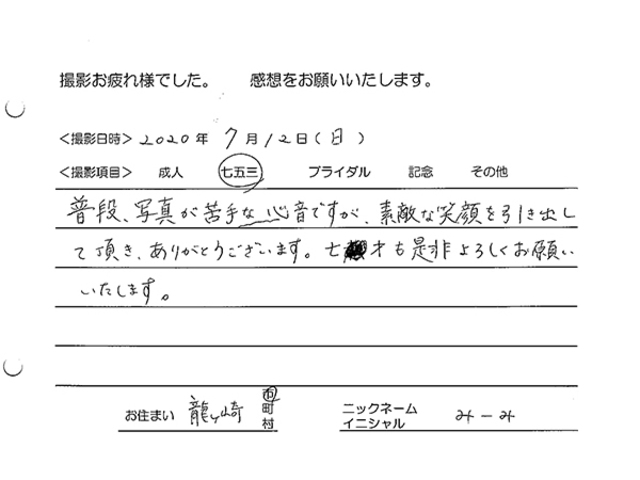 撮影お疲れ様でした。 感想をお願いいたします。
<撮影日時> 2020年 7月12日(日)
<撮影項目> 成人 七五三 ブライダル 記念 その他
普段、写真が苦手な心音ですが、素敵な笑顔を引き出し
て頂き、ありがとうございます。七才も是非よろしくお願い
いたします。
お住まい 龍ヶ崎 市町村
ニックネーム イニシャル みーみ